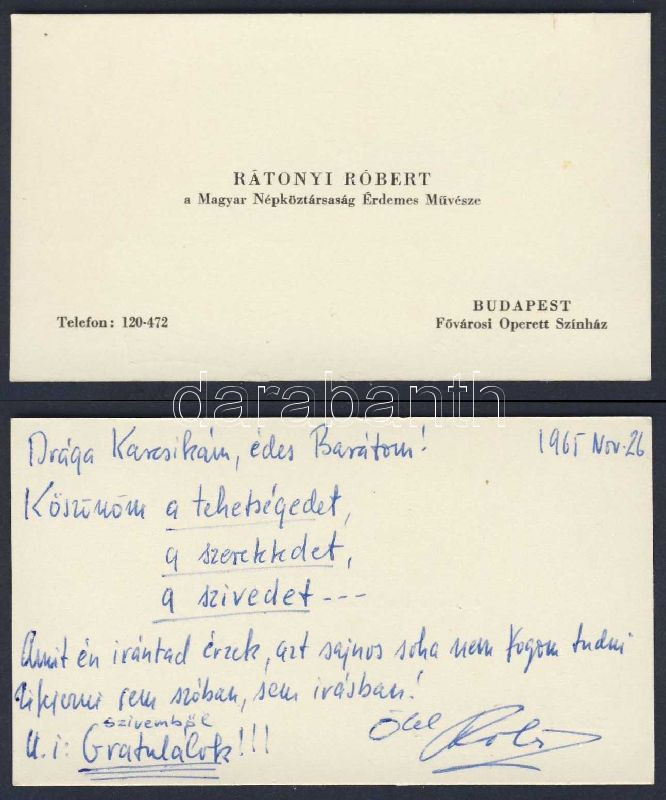 RÁTONYI RÓBERT
a Magyar Népköztársaság Érdemes Művésze
BUDAPEST
Telefon: 120-472
Fővárosi Operett Színház
darabanth
Drága Karcsikám, édes Barátom!
1965 Nov. 26
Köszönöm a tehetségedet,
a szeretetedet,
a szivedet ---
Amit én irántad érzek, azt sajnos soha nem fogom tudni
kifejezni sem szóban, sem irásban!
szivemből
U.i: Gratulálok!!!
Ölel
Robi